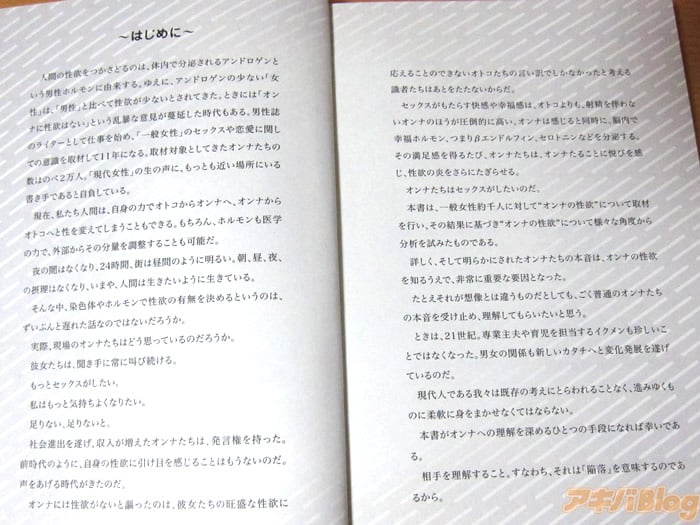 ～はじめに～
人間の性欲をつかさどるのは、体内で分泌されるアンドロゲンと
いう男性ホルモンに由来する。ゆえに、アンドロゲンの少ない「女
性」は、「男性」と比べて性欲が少ないとされてきた。ときには「オン
ナに性欲はない」という乱暴な意見が蔓延した時代もある。男性誌
のライターとして仕事を始め、「一般女性」のセックスや恋愛に関し
ての意識を取材して11年になる。取材対象としてきたオンナたちの
数はのべ2万人。「現代女性」の生の声に、もっとも近い場所にいる
書き手であると自負している。
現在、私たち人間は、自身の力でオトコからオンナへ、オンナから
オトコへと性を変えてしまうこともできる。もちろん、ホルモンも医学
の力で、外部からその分量を調整することも可能だ。
夜の闇はなくなり、24時間、街は昼間のように明るい。朝、昼、夜、
の摂理はなくなり、いまや、人間は生きたいように生きている。
そんな中、染色体やホルモンで性欲の有無を決めるというのは、
ずいぶんと遅れた話なのではないだろうか。
実際、現場のオンナたちはどう思っているのだろうか。
彼女たちは、聞き手に常に叫び続ける。
もっとセックスがしたい。
私はもっと気持ちよくなりたい。
足りない、足りないと。
社会進出を遂げ、収入が増えたオンナたちは、発言権を持った。
前時代のように、自身の性欲に引け目を感じることはもうないのだ。
声をあげる時代がきたのだ。
オンナには性欲がないと謳ったのは、彼女たちの旺盛な性欲に
応えることのできないオトコたちの言い訳でしかなかったと考える
識者たちはあとをたたないからだ。
セックスがもたらす快感や幸福感は、オトコよりも、射精を伴わな
いオンナのほうが圧倒的に高い。オンナは感じると同時に、脳内で
幸福ホルモン、つまりβエンドルフィン、セロトニンなどを分泌する。
その満足感を得るたび、オンナたちは、オンナたることに悦びを感
じ、性欲の炎をさらにたぎらせる。
オンナたちはセックスがしたいのだ。
本書は、一般女性約千人に対して“オンナの性欲”について取材
を行い、その結果に基づき“オンナの性欲”について様々な角度から
分析を試みたものである。
詳しく、そして明らかにされたオンナたちの本音は、オンナの性欲
を知るうえで、非常に重要な要因となった。
たとえそれが想像とは違うものだとしても、ごく普通のオンナたち
の本音を受け止め、理解してもらいたいと思う。
ときは、21世紀。専業主夫や育児を担当するイクメンも珍しいこ
とではなくなった。男女の関係も新しいカタチへと変化発展を遂げ
ているのだ。
現代人である我々は既存の考えにとらわれることなく、進みゆくも
のに柔軟に身をまかせなくてはならない。
本書がオンナへの理解を深めるひとつの手段になれば幸いであ
る。
相手を理解すること。すなわち、それは「陥落」を意味するのであ
るから。
アキバBlog